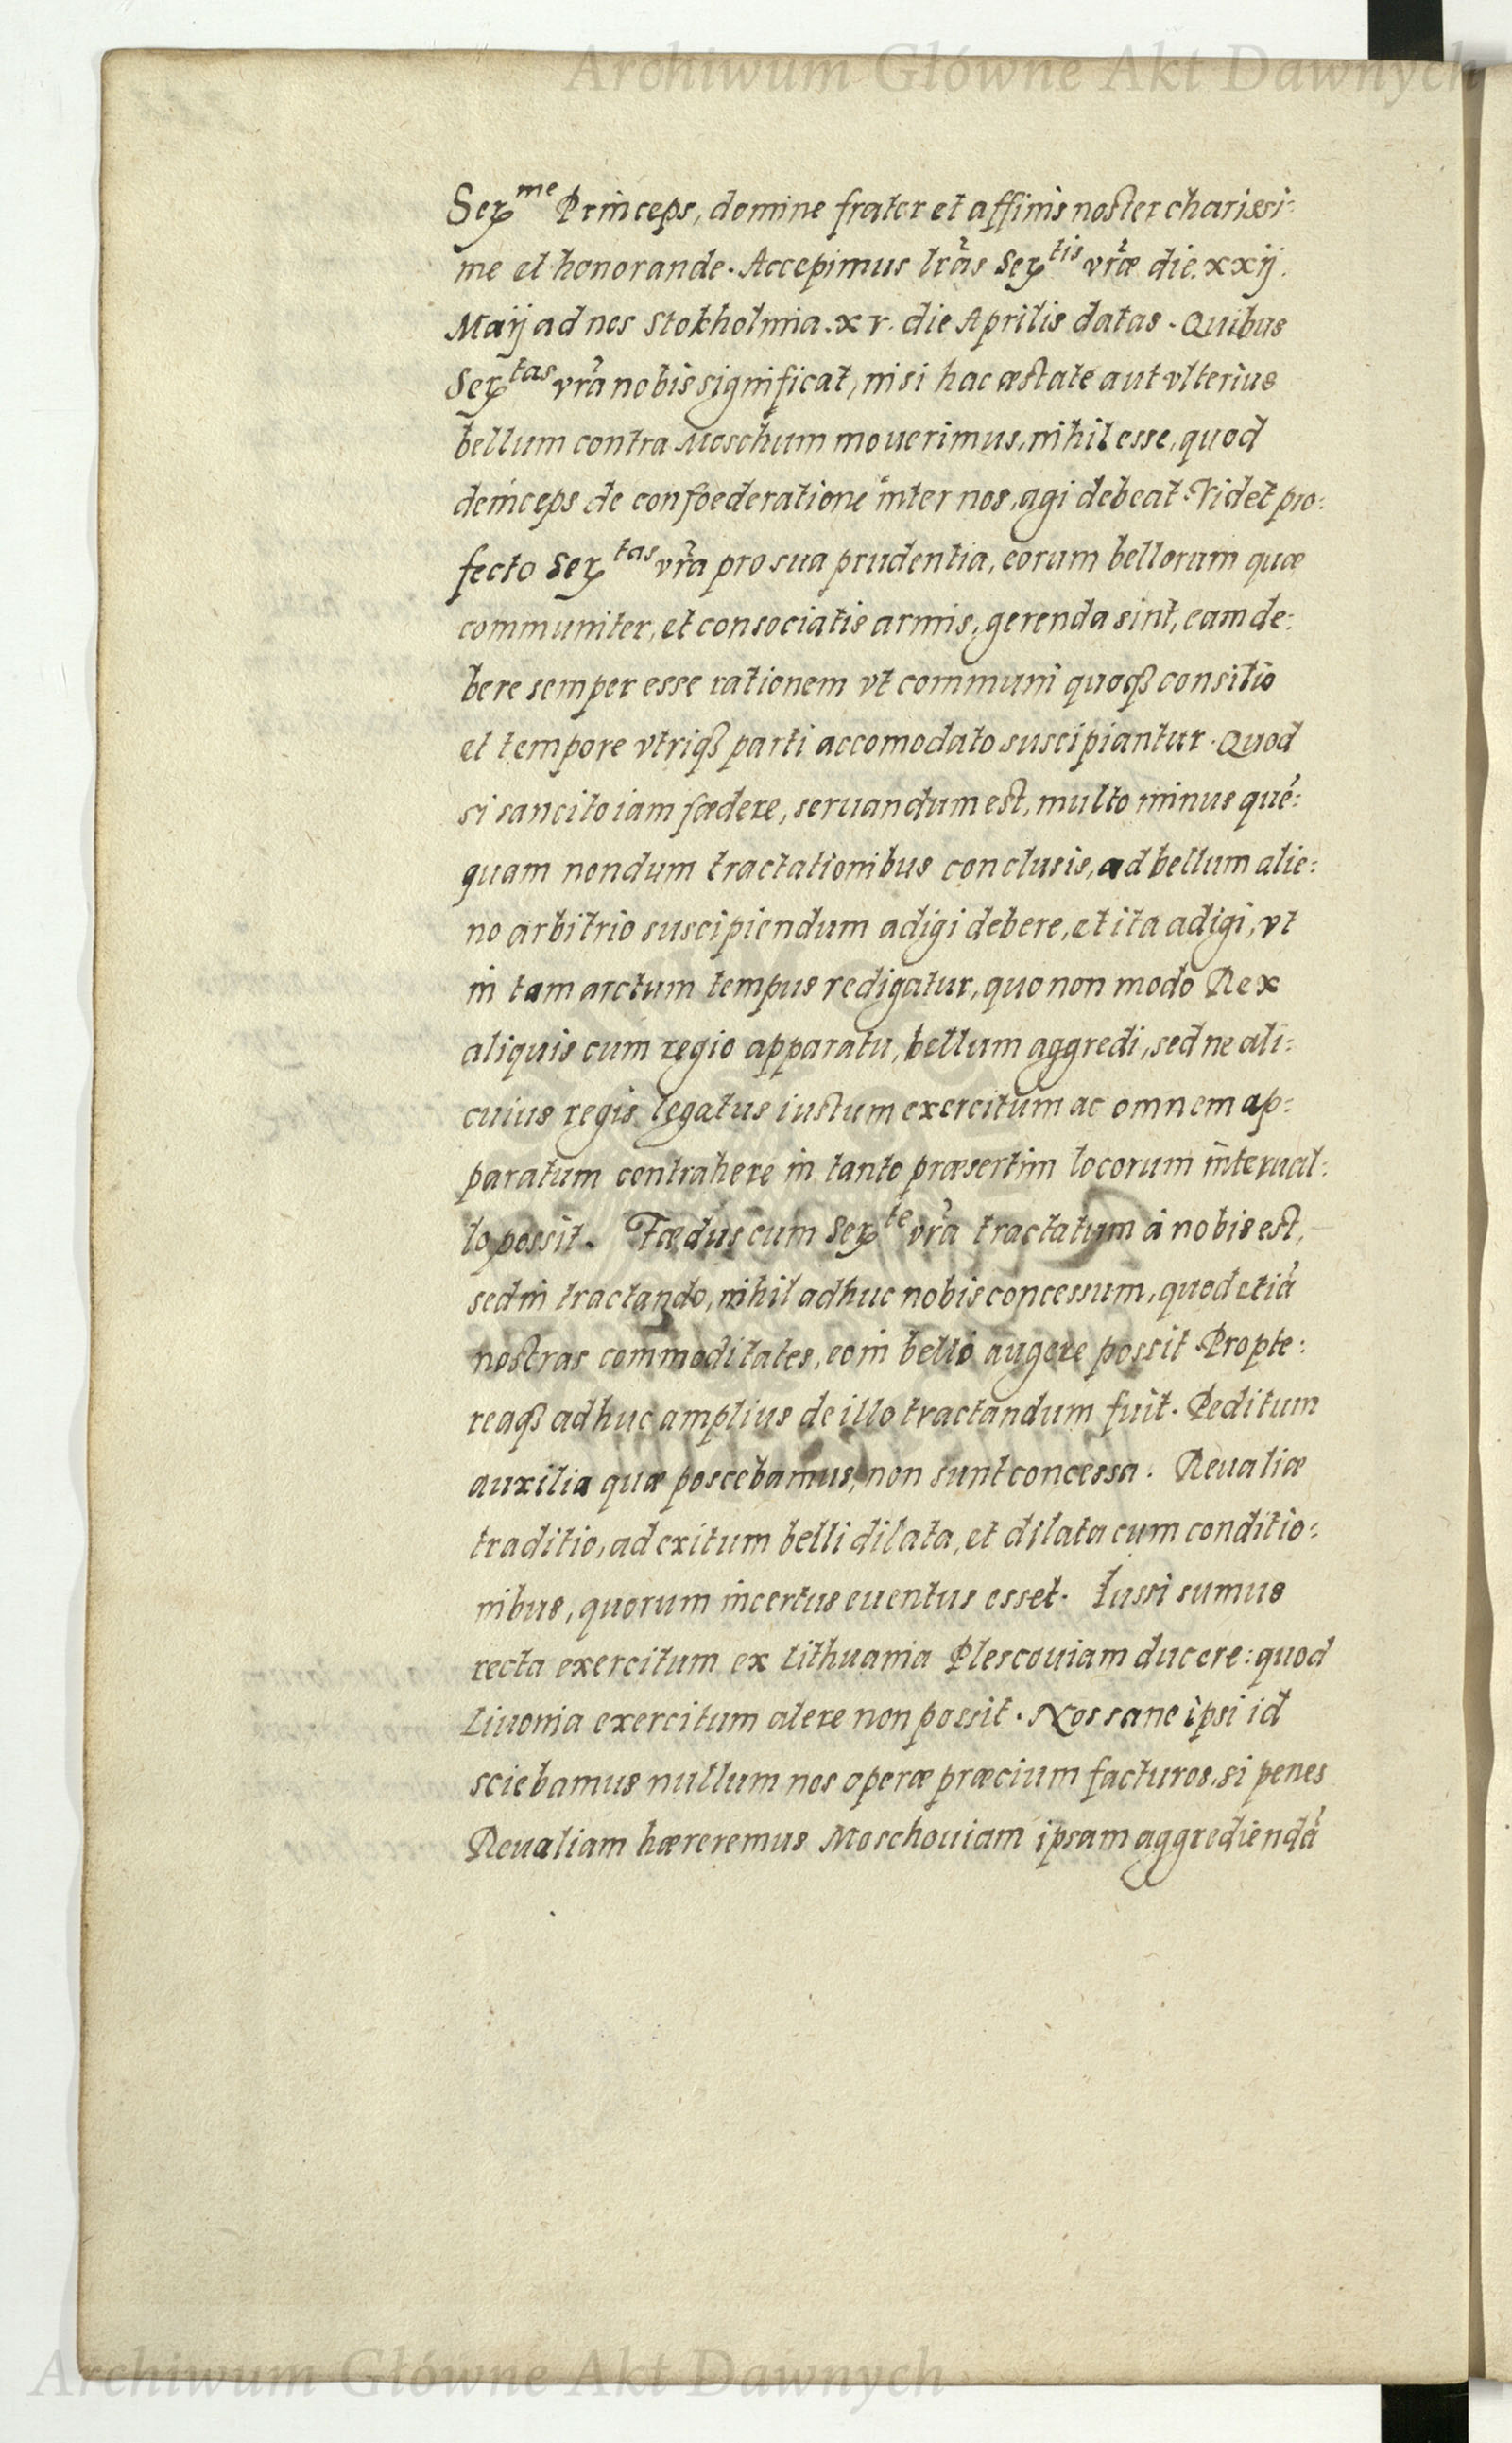 Archiwum Główne Akt Dawnych
Serᵐᵉ Princeps, domine frater et affinis noster charissi:
me et honorande. Accepimus lr̃as Serᵗⁱˢ vr̃æ die xxij.
Maij ad nos Stokholmia xv. die Aprilis datas. Quibus
Serᵗᵃˢ vr̃a nobis significat, nisi hac æstate aut vlterius
bellum contra Moschum mouerimus, nihil esse, quod
deinceps de confoederatione inter nos, agi debeat. Videt pro:
fecto Serᵗᵃˢ vr̃a pro sua prudentia, eorum bellorum quæ
communiter, et consociatis armis, gerenda sint, eam de:
bere semper esse rationem vt communi quoqꝫ consilio
et tempore vtriqꝫ parti accomodato suscipiantur. Quod
si sancito iam fœdere, seruandum est, multo minus quẽ:
quam nondum tractationibus conclusis, ad bellum alie:
no arbitrio suscipiendum adigi debere, et ita adigi, vt
in tam arctum tempus redigatur, quo non modo Rex
aliquis cum regio apparatu, bellum aggredi, sed ne ali:
cuius regis legatus iustum exercitum ac omnem ap:
paratum contrahere in tanto præsertim locorum interual:
lo possit. Fœdus cum Serᵗᵉ vr̃a tractatum à nobis est,
sed in tractando, nihil adhuc nobis concessum, quod etiã
nostras commoditates, eo in bello augere possit. Propte:
reaqꝫ adhuc amplius de illo tractandum fuit. Peditum
auxilia quæ poscebamus, non sunt concessa. Reualiæ
traditio, ad exitum belli dilata, et dilata cum conditio:
nibus, quorum incertus euentus esset. Iussi sumus
recta exercitum ex Lithuania Plescouiam ducere: quod
Liuonia exercitum alere non possit. Nos sane ipsi id
sciebamus nullum nos operæ præcium facturos, si penes
Reualiam hæreremus Moschouiam ipsam aggrediendã
Archiwum Główne Akt Dawnych